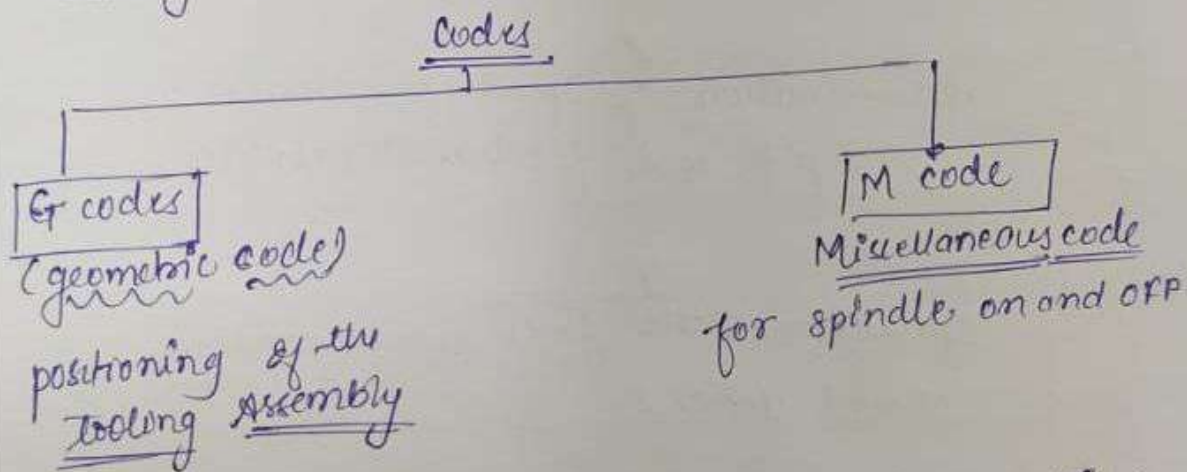 Codes
G codes
(geometric code)
positioning of the
Tooling Assembly
M code
Miscellaneous code
for spindle on and OFF